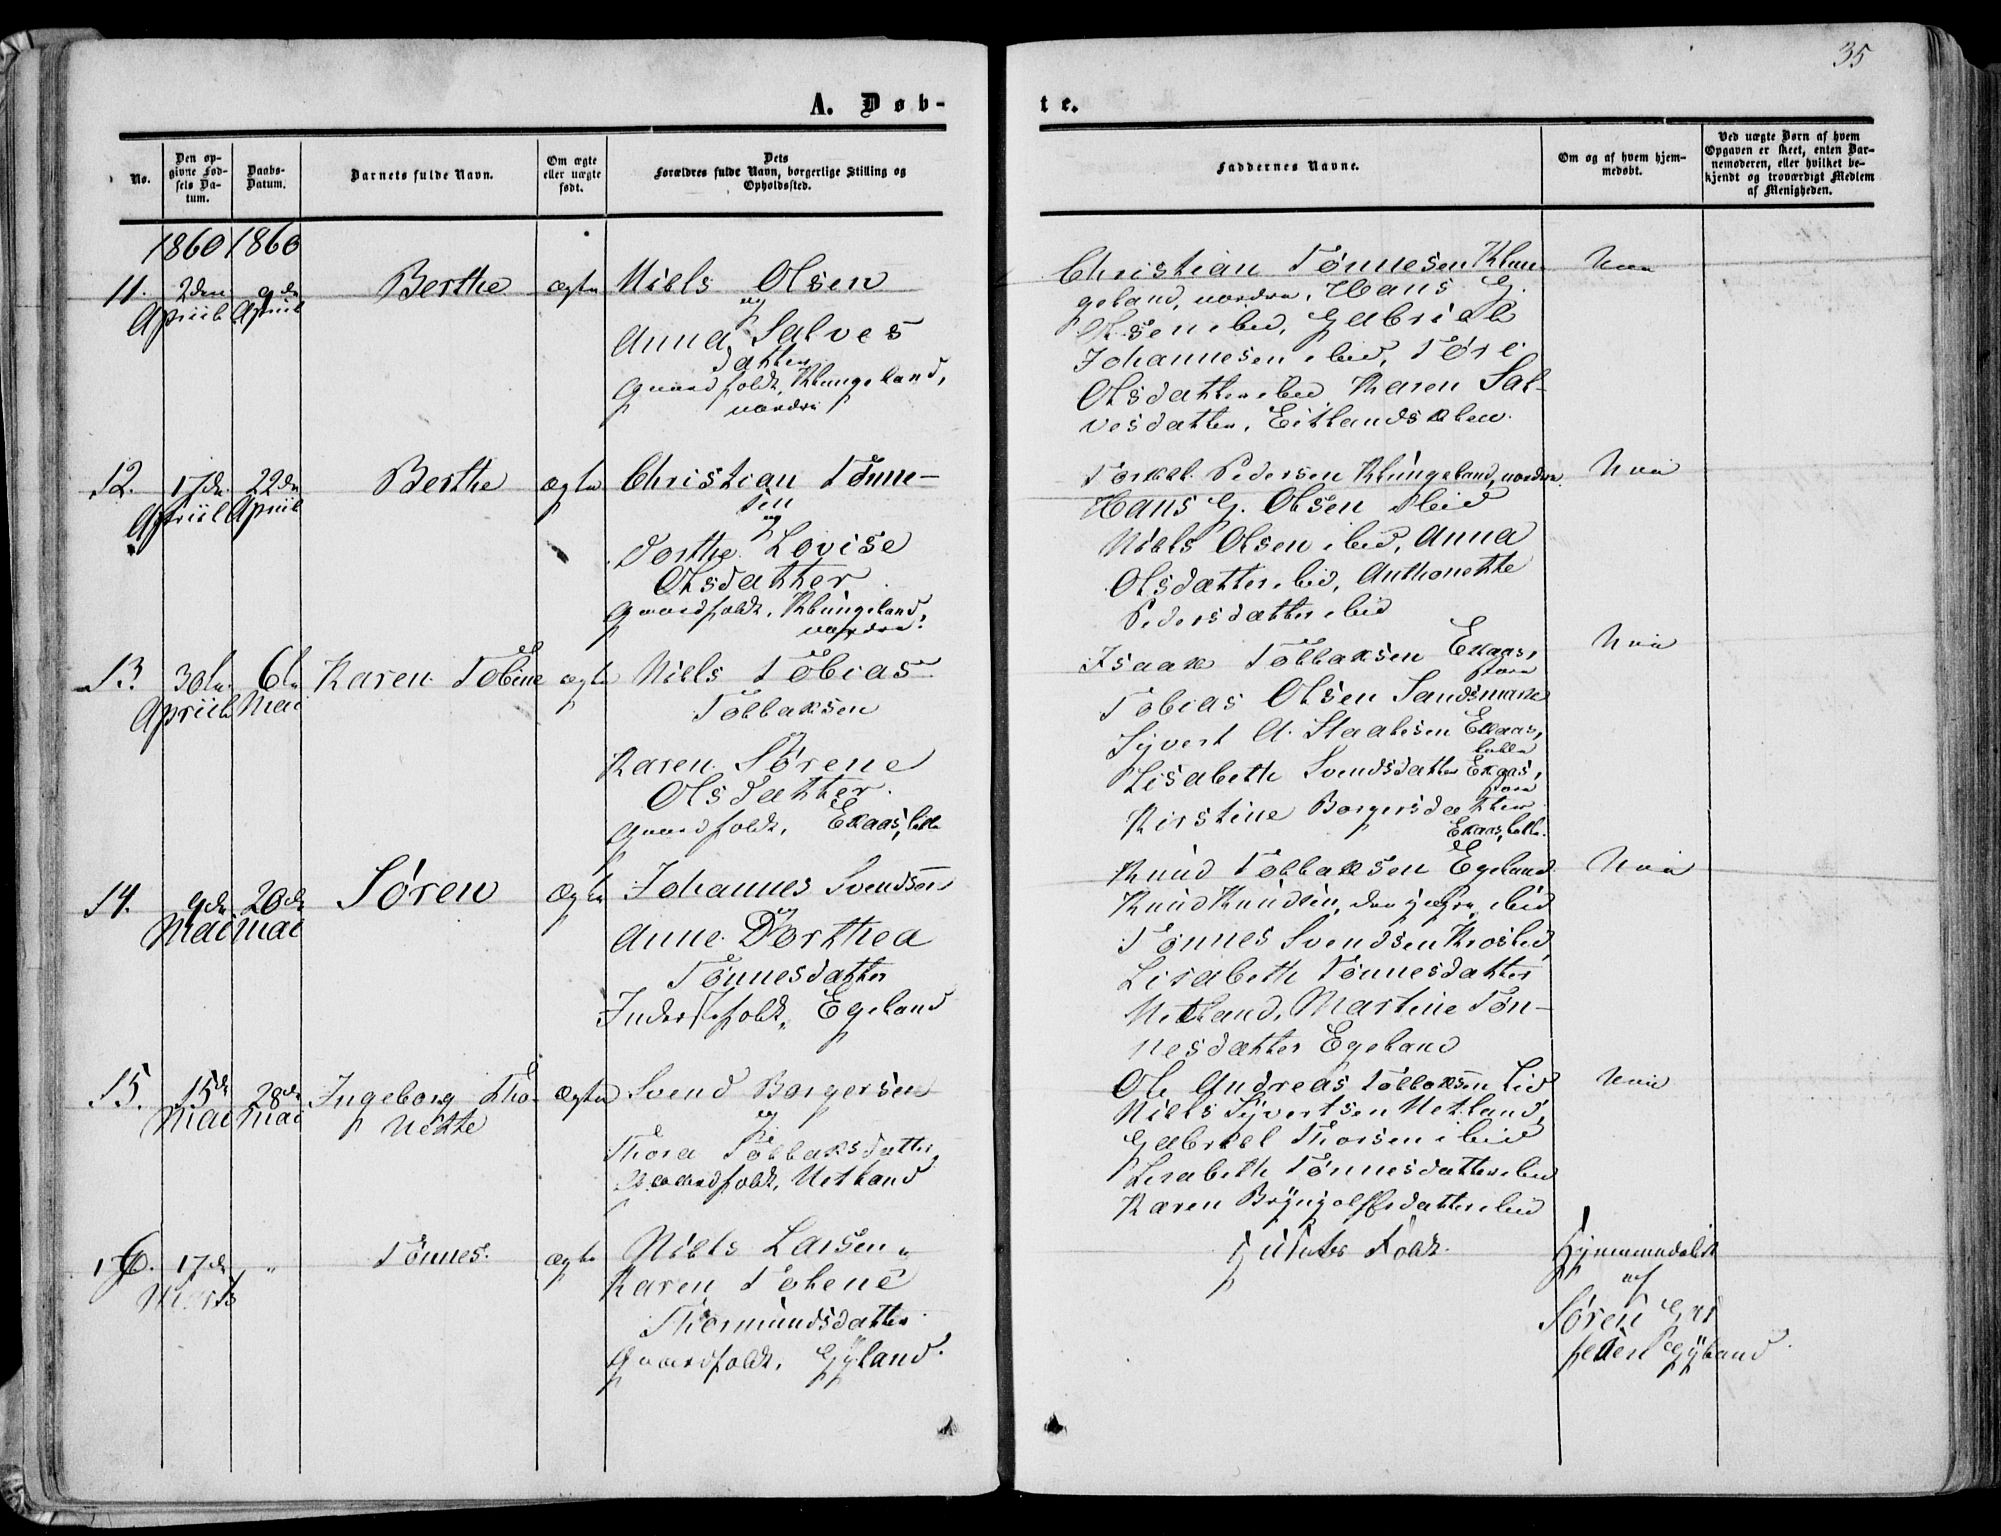 35
A. Døb-
te.
No.
Den op-
givne Fød-
sels Da-
tum.
Daabs-
Datum.
Barnets fulde Navn.
Om ægte
eller uægte
født.
Dets
Forældres fulde Navn, borgerlige Stilling og
Opholdssted.
Faddernes Navne.
Om og af hvem hjem-
medøbt.
Ved uægte Børn af hvem
Opgaven er skeet, enten Bar-
nemoderen, eller hvilket be-
kjendt og troværdigt Medlem
af Menigheden.
1860 1860
11.
2den
Apriil
9de
Apriil
Berthe
ægte
Niels Olsen
og
Anna Salves
datter
Gaardfolk, Klungeland,
nordre
Christian Tønnesen Klun-
geland, nordre, Hans G.
Olsen ibid, Gabriel
Johannesen ibid, Tøre
Olsdatter ibid Karen Sal-
vesdatter, Eitlandsklev.
Nei
12.
17de
Apriil
22de
Apriil
Berthe
ægte
Christian Tønne-
sen
og
Dorthe Lovise
Olsdatter
Gaardfolk, Klungeland
nordre
Torkel Pedersen Klungeland, nordre.
Hans G. Olsen ibid
Niels Olsen ibid, Anna
Olsdatter ibid, Anthonette
Pedersdatter ibid
Nei
13.
30te
Apriil
6te
Mai
Karen Tobine
ægte
Niels Tobias
Tollaksen
Karen Sørene
Olsdatter
Gaardfolk, Ekaas, lille
Isaak Tollaksen Ekaas,
store
Tobias Olsen Sandsmark
Syvert A. Staalesen Ekaas,
lille
Lisabeth Svendsdatter Ekaas,
store
Kirstine Borgersdatter
Ekaas, lille.
Nei
14.
9de
Mai
20de
Mai
Søren
ægte
Johannes Svendsen
og
Anne Dorthea
Tønnesdatter
Inderstfolk, Egeland
Knud Tollaksen Egeland
Knud Knudsen, den yngre, ibid
Tønnes Svendsen Kroslid,
Lisabeth Tønnesdatter
Netland, Martine Tøn-
nesdatter Egeland
Nei
15.
15de
Mai
28de
Mai
Ingeborg Tho-
nette
ægte
Svend Borgersen
og
Thora Tollaksdatter,
Gaardfolk, Netland
Ole Andreas Tollaksen Lid
Niels Syvertsen Netland,
Gabriel Thorsen ibid
Lisabeth Tønnesdatter ibid
Karen Brynjolfsdatter ibid
Nei
16.
17de
Marts
"
Tønnes.
ægte
Niels Larsen "
Karen Tolene
Thormundsdatter
Gaardfolk, Gyland.
Hjemmedøbt
af
Søren Gas
Gyland